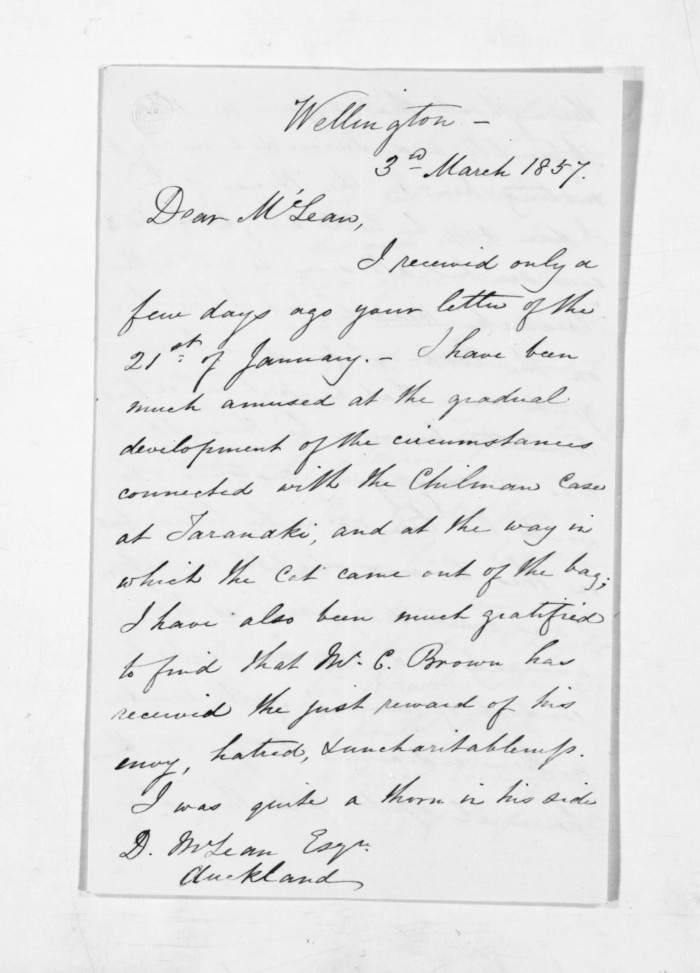 Wellington -
3rd March 1857.
Dear McLean,
I received only a
few days ago your letter of the
21st. of January. - I have been
much amused at the gradual
development of the circumstances
connected with the Chilman Case
at Taranaki, and at the way in
which the Cat came out of the bag;
I have also been much gratified
to find that Mr. C. Brown has
received the just reward of his
envy, hatred, & uncharitableness.
I was quite a thorn in his side
D. McLean Esqr.
Auckland